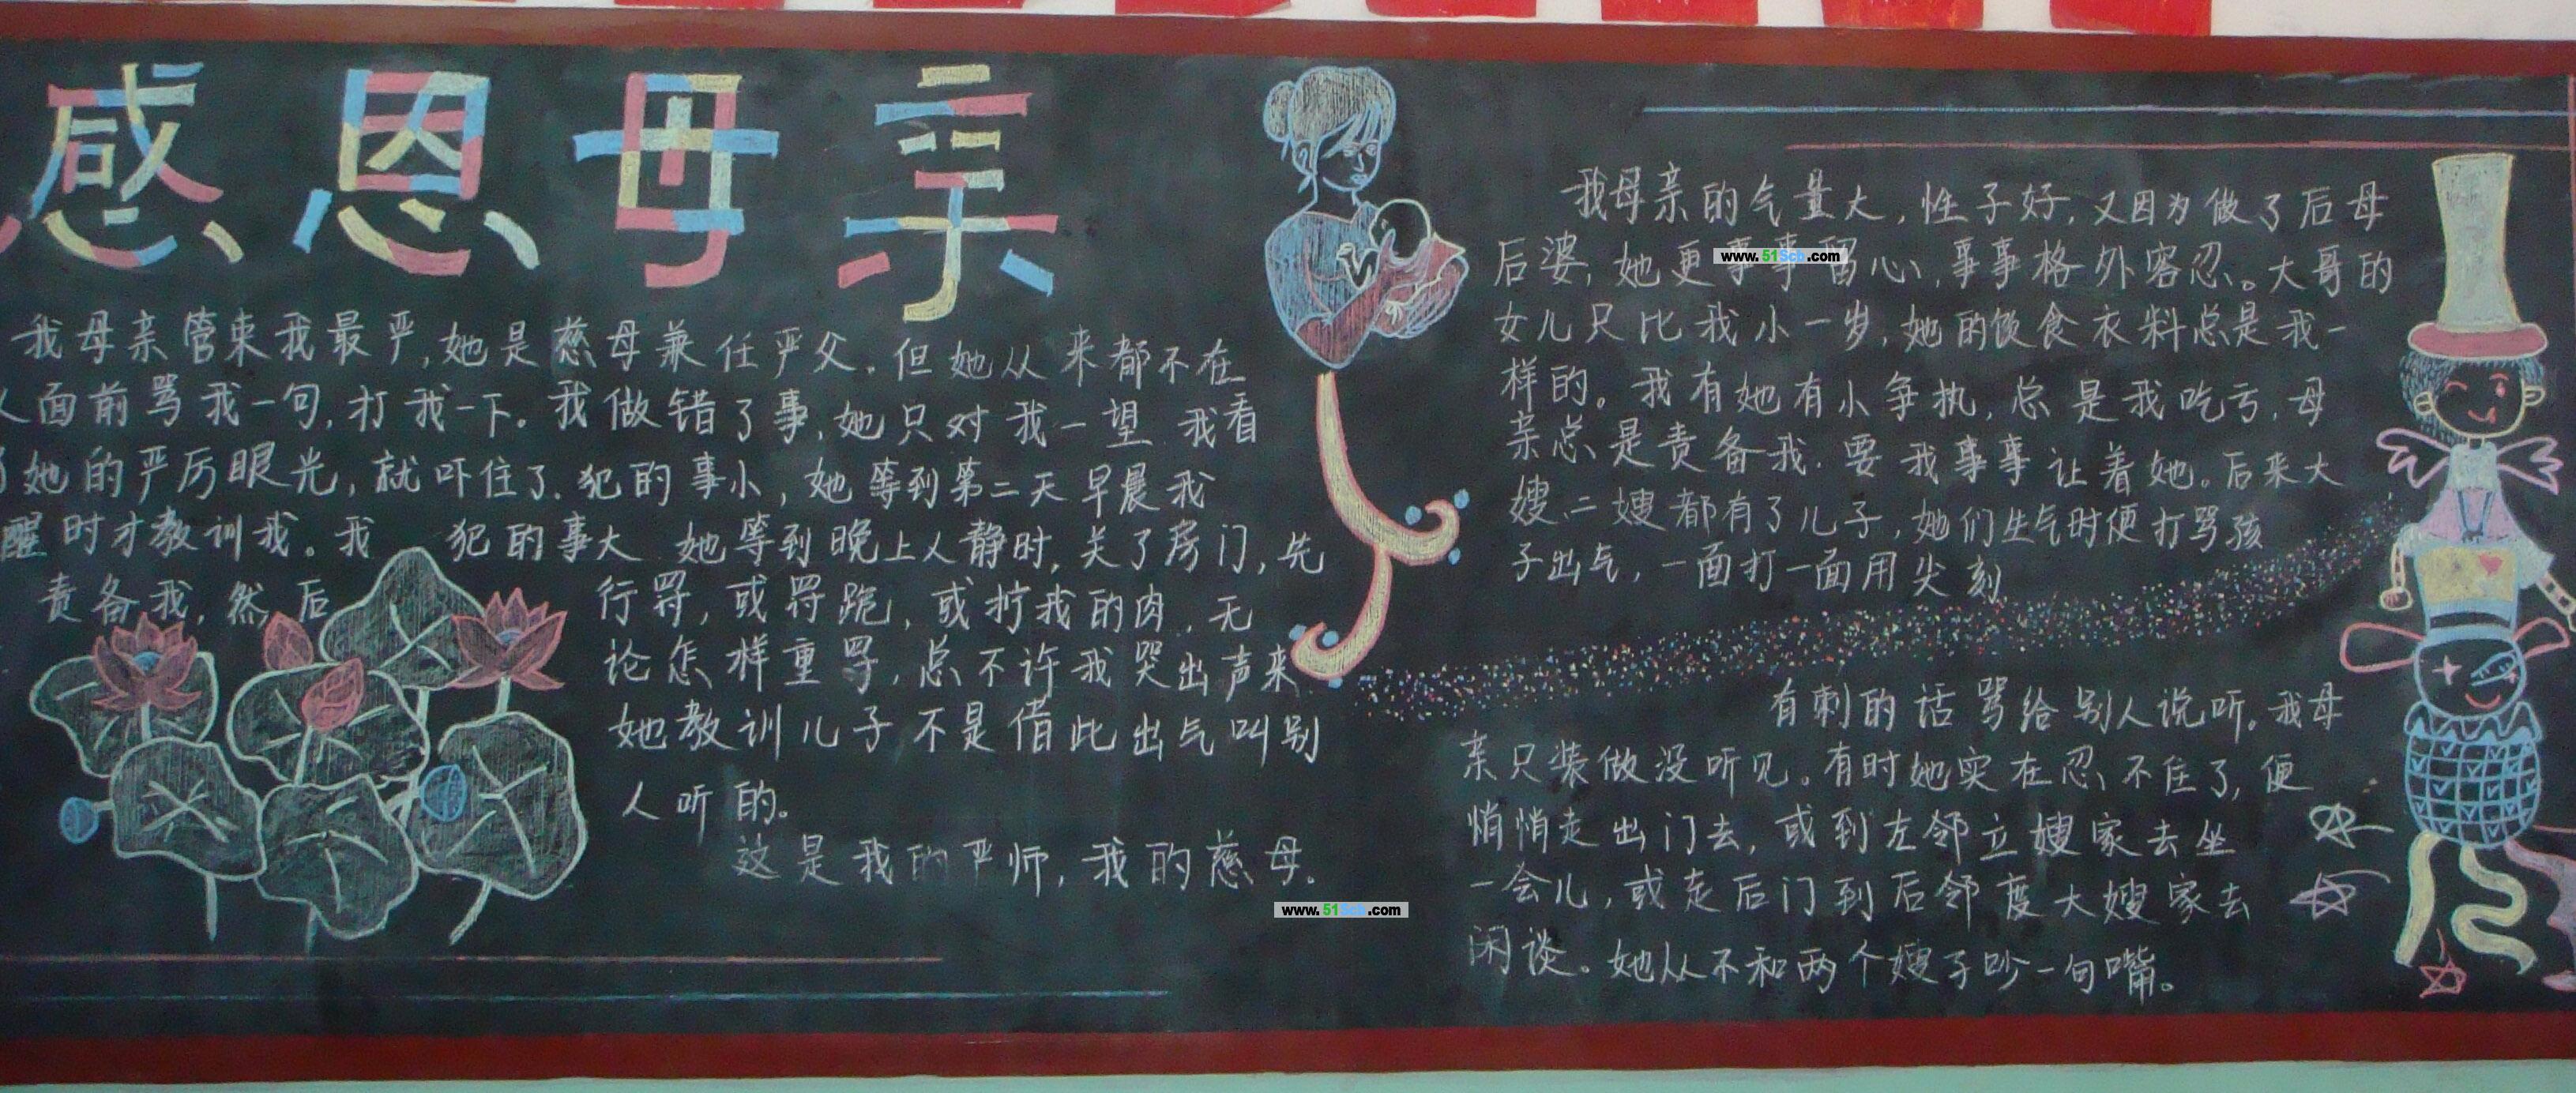 感恩母亲
我母亲管束我最严,她是慈母兼任严父。但她从来都不在
人面前骂我一句,打我一下。我做错了事,她只对我一望 我看
了她的严厉眼光,就吓住了.犯的事小,她等到第二天早晨我
醒时才教训我。我 犯的事大 她等到晚上人静时,关了房门,先
责备我,然后 行罚,或罚跪,或拧我的肉,无
论怎样重罚,总不许我哭出声来
她教训儿子不是借此出气叫别
人听的。
这是我的严师,我的慈母。
www.51Scb.com
我母亲的气量大,性子好,又因为做了后母
后婆,她更事事留心,事事格外容忍。大哥的
www.51Scb.com
女儿只比我小一岁,她的饮食衣料总是我一
样的。我有她有小争执,总是我吃亏,母
亲总是责备我.要我事事让着她。后来大
嫂二嫂都有了儿子,她们生气时便打骂孩
子出气,一面打一面用尖刻
有刺的话骂给别人说听。我母
亲只装做没听见。有时她实在忍不住了,便
悄悄走出门去,或到左邻立嫂家去坐
一会儿,或走后门到后邻度大嫂家去
闲谈。她从不和两个嫂子吵一句嘴。